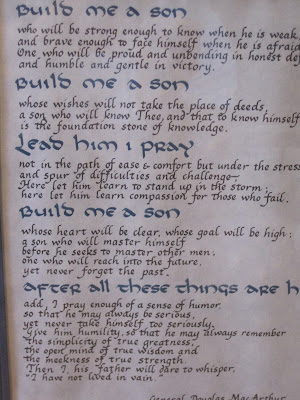 Build me a son
who will be strong enough to know when he is weak,
and brave enough to face himself when he is afraid
One who will be proud and unbending in honest de
and humble and gentle in victory.
Build me a son
whose wishes will not take the place of deeds;
a son who will know Thee, and that to know himself
is the foundation stone of knowledge.
Lead him I pray
not in the path of ease & comfort but under the stress
and spur of difficulties and challenge.
Here let him learn to stand up in the storm;
here let him learn compassion for those who fail.
Build me a son
whose heart will be clear, whose goal will be high;
a son who will master himself
before he seeks to master other men;
one who will reach into the future,
yet never forget the past.
After all these things are h
add, I pray enough of a sense of humor,
so that he may always be serious,
yet never take himself too seriously.
Give him humility, so that he may always remember
the simplicity of true greatness,
the open mind of true wisdom and
the meekness of true strength.
Then I, his father will dare to whisper,
"I have not lived in vain."
General Douglas MacArthur